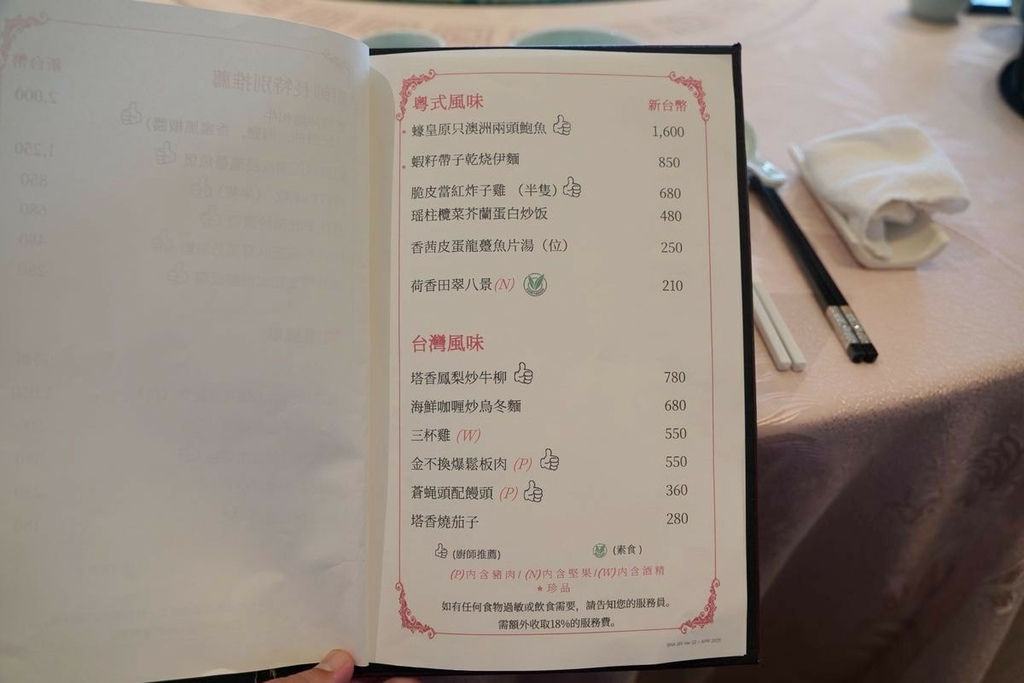 粵式風味 新台幣
蠔皇原只澳洲兩頭鮑魚 1,600
蝦籽帶子乾燒伊麵 850
脆皮當紅炸子雞 (半隻) 680
瑶柱欖菜芥蘭蛋白炒饭 480
香茜皮蛋龍躉魚片湯 (位) 250
荷香田翠八景(N) 210
台灣風味
塔香鳳梨炒牛柳 780
海鮮咖喱炒烏冬麵 680
三杯雞 (W) 550
金不換爆鬆板肉 (P) 550
蒼蝇頭配饅頭 (P) 360
塔香燒茄子 280
(廚師推薦) (素食)
(P)內含豬肉/ (N)內含堅果/(W)內含酒精
★珍品
如有任何食物過敏或飲食需要，請告知您的服務員。
需額外收取18%的服務費。